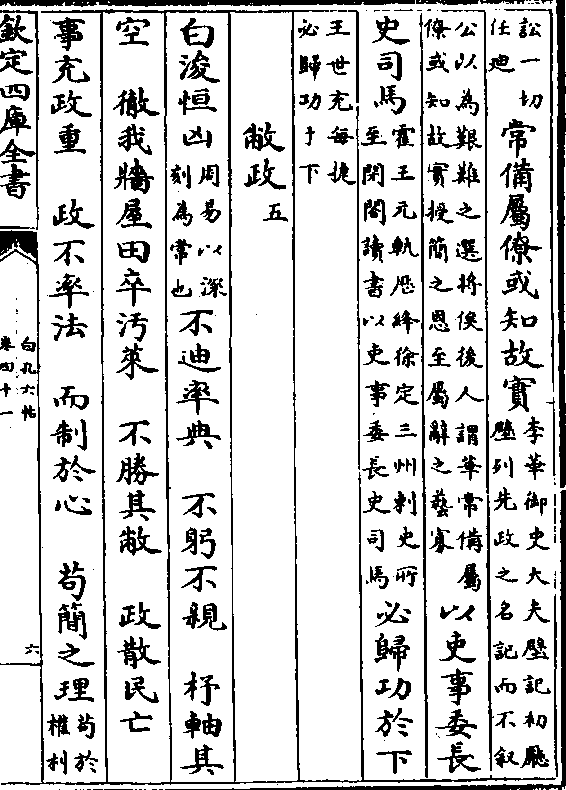 訟一切
任廸
常備屬僚或知故實
李華御史大夫壁記初廳
壁列先政之名記而不叙
公以為艱難之選將俟後人謂華常備屬
僚或知故實授簡之恩至屬辭之藝寡
以吏事委長
史司馬
霍王元軌歴絳徐定三州刺史所
至閉閤讀書以吏事委長史司馬
必歸功於下
王世充每捷
必歸功于下
敝政五
白浚恒凶
周易以深
刻為常也
不迪率典　不躬不親　杼軸其
空　徹我牆屋田卒汚萊　不勝其敝　政散民亡
事充政重　政不率法　而制於心　苟簡之理
苟於
權利
欽定四庫全書
白孔六帖
卷四十一
六